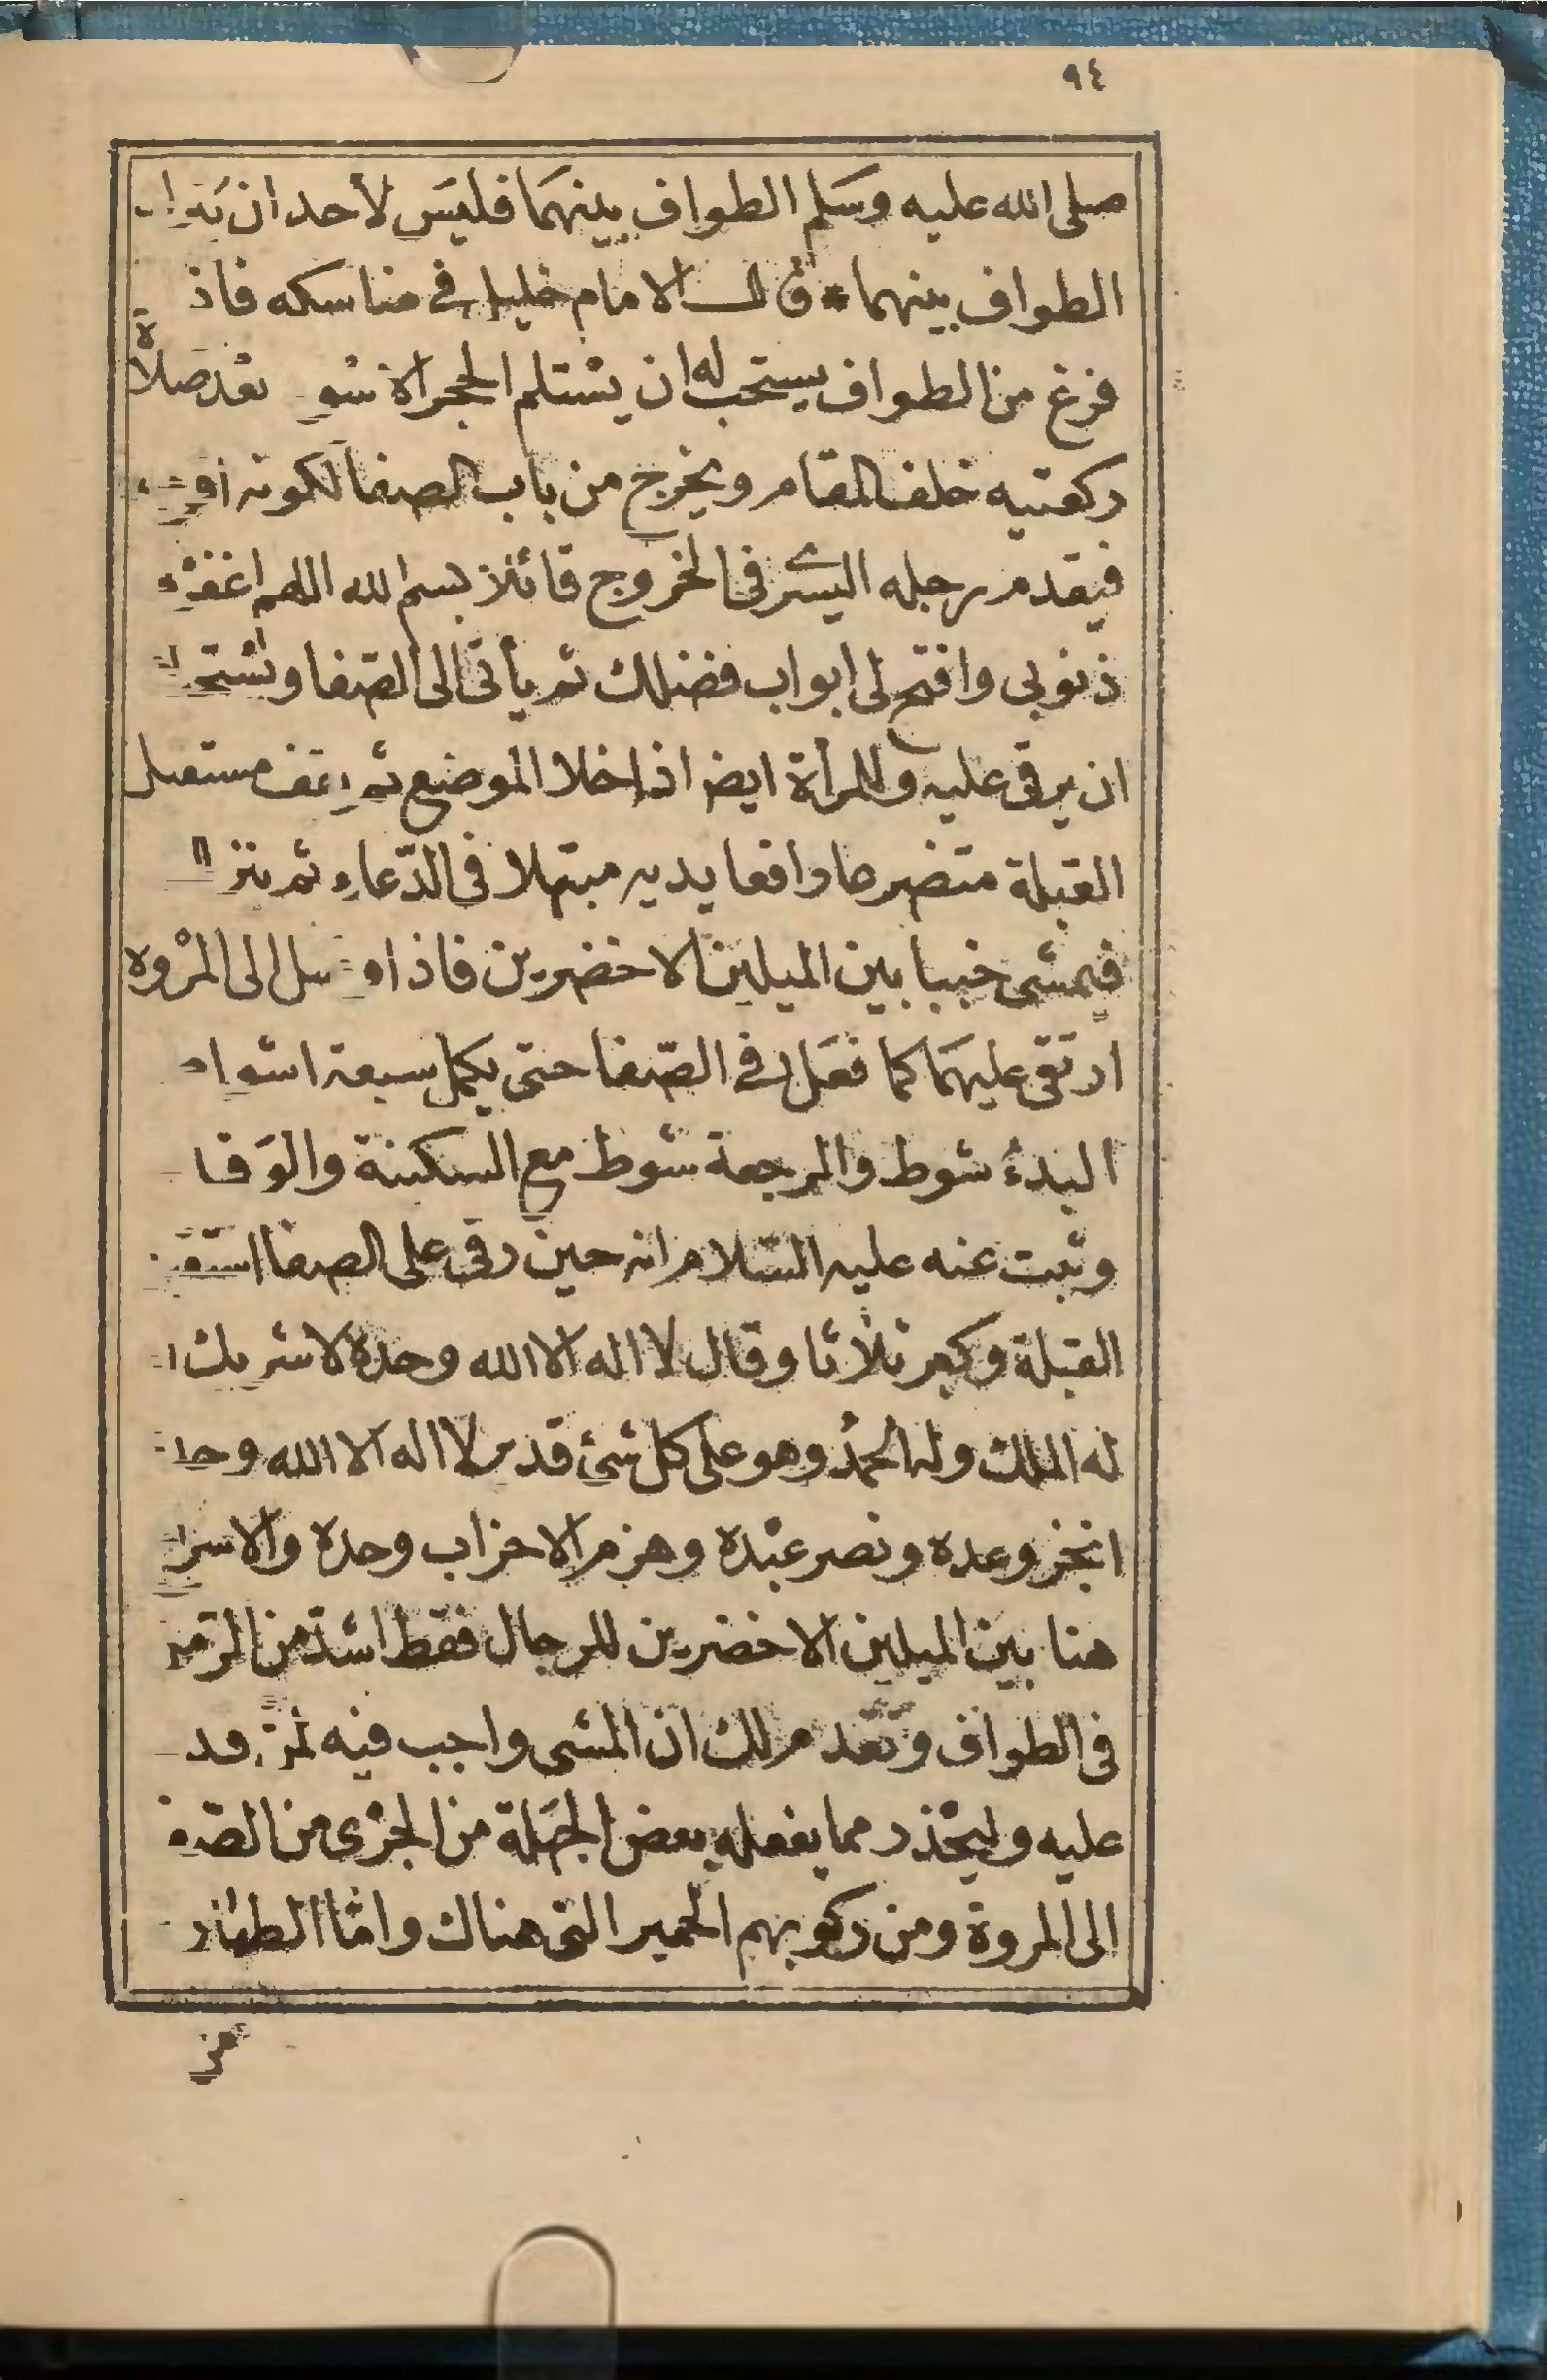 ٩٤
صلى الله عليه وسلم الطواف بينهما فليس لأحد ان
الطواف بينهما * قال الامام خليل في مناسكه فاذ
فرغ من الطواف يستحب له ان يستلم الحجر الاسو بعد صلاة
ركعتيه خلف المقام ويخرج من باب الصفا لكونه اقرب
فيقدم رجله اليسرى في الخروج قائلا بسم الله اللهم اغفر
ذنوبي وافتح لى ابواب فضلك ثم يأتى الى الصفا ويستحب
ان يرقى عليه وللمرأة ايض اذا خلا الموضع ثم يقف مستقبل
القبلة متضرعا رافعا يديه مبتهلا فى الدّعاء ثم ينزل
فيمشى خببا بين الميلين الاخضرين فاذا وصل الى المرْوة
ارتقى عليهَا كما فعَل في الصّفا حتى يكمل سبعة اشواط
البدءُ شوط والمرجعة شوط مع السكينة والوَقا
وثبت عنه عليه السّلام انه حين رقى على الصفا استقبل
القبلة وكبر ثلاثا وقال لا اله الا الله وحده لا شريك
له الملك وله الحمدُ وهو على كل شئ قدير لا اله الا الله وحد
انجز وعده ونصر عبْده وهزم الاحزاب وحده والاسراع
هنا بين الميلين الاخضرين للرجال فقط اشدّ من الرّمل
فى الطواف وتقّدم لك ان المشى واجب فيه لمن قد
عليه وليحْذر مما يفعله بعض الجهَلة من الجرْى من الصّفا
الى المروة ومن ركوبهم الحمير التى هناك وامّا الطهار
من